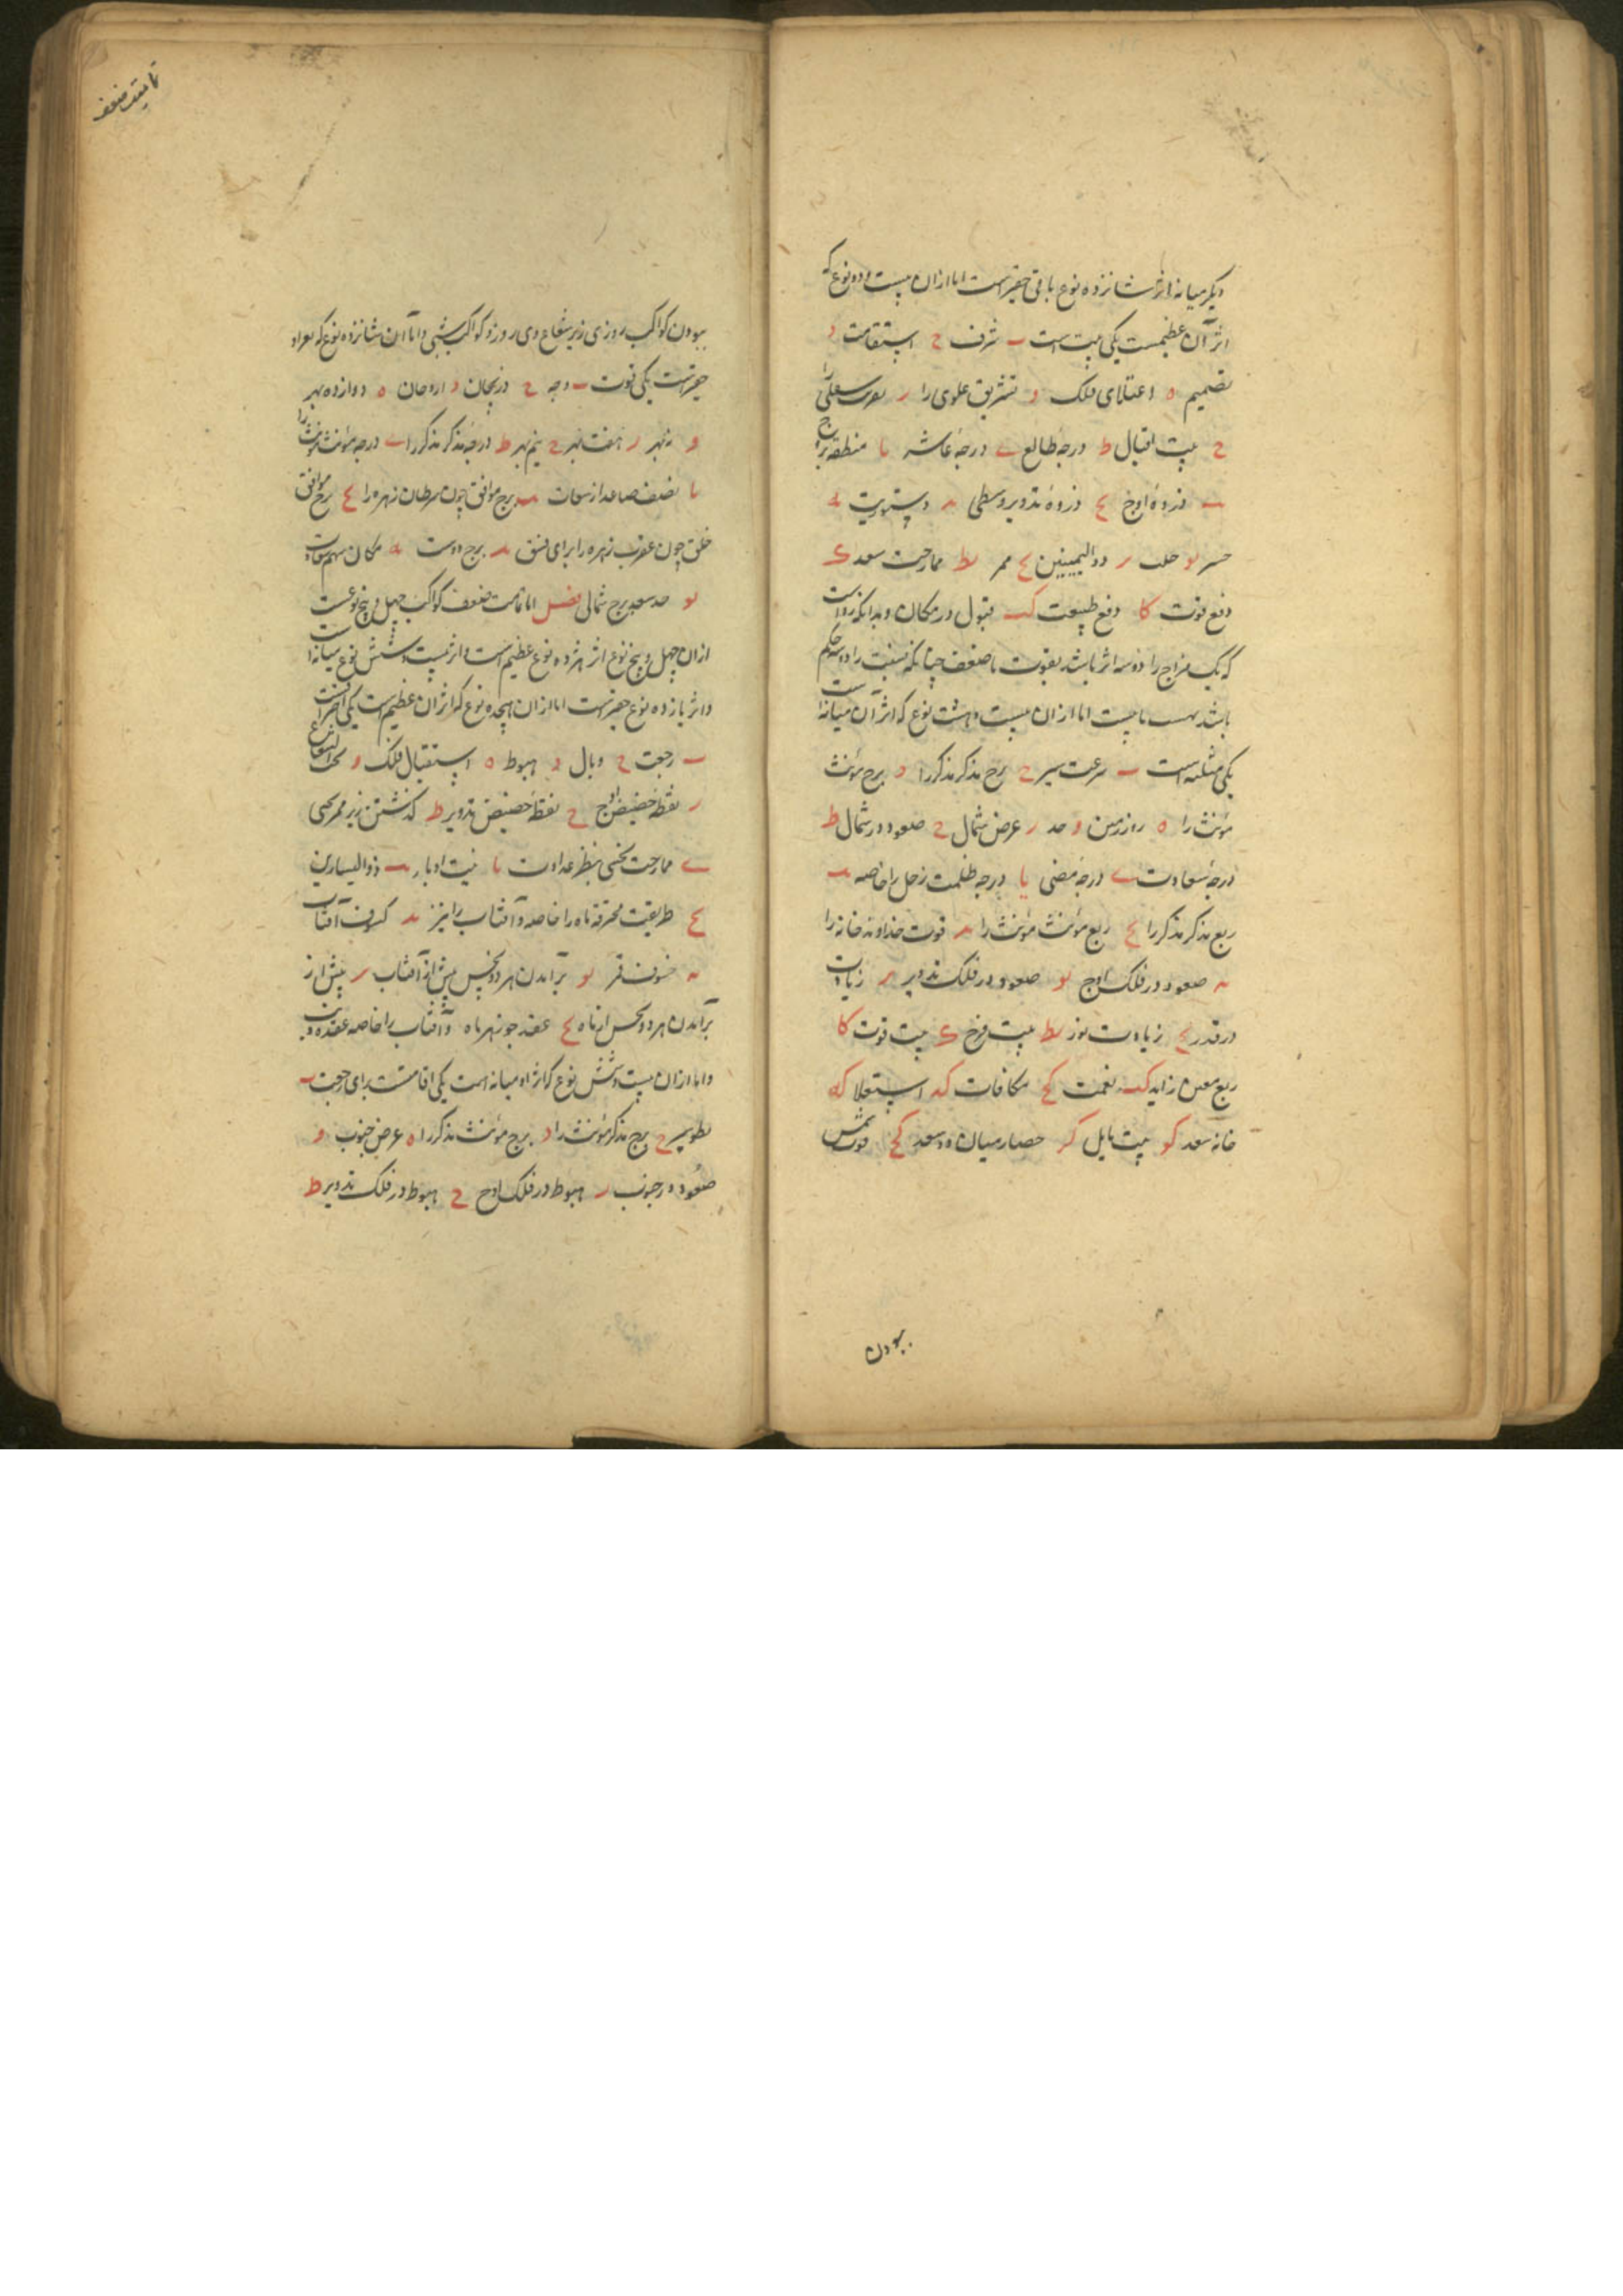 دیگر میانه اثر شانزده نوع باقی حقیرست اما ازان بیست و دو نوع که
اثر آن عظیمست یکی بیت است ب شرف ح استقامت د
تصمیم ه اعتلای فلک و تشریق علوی را ر سفلی را
ح بیت اقبال ط درجهٔ طالع ی درجهٔ عاشر یا منطقه بروج
یب ذروهٔ اوج یح ذروهٔ تدویر وسطی ید دستوریت یه
یو حلب یر ذوالیمینین یح ممر یط ممازجت سعد ک
دفع قوت کا دفع طبیعت کب قبول در مکان و بدانکه رواست
که یک مزاج را دو سه اثر باشد بقوت یا ضعف چنانکه را دو سه حکم
باشد اما ازان بیست و هشت نوع که اثر آن میانه است
یکی مثلثه است ب سرعت سیر ح برج مذکر مذکر را د برج مؤنث
مؤنث را ه و حد ر عرض شمال ح صعود در شمال ط
درجهٔ سعادت ی درجهٔ مضی یا درجه ظلمت زحل را خاصه یب
ربع مذکر مذکر را یح ربع مؤنث مؤنث را ید قوت خداوند خانه را
یه صعود در فلک اوج یو صعود در فلک تدویر یر زیادت
در قدر یح زیادت نور یط بیت فرح ک بیت قوت کا
ربع زاید کب نعمت کح مکافات کد استعلا که
خانه سعد کو بیت مایل کر حصار میان دو سعد کح شمس
ببودن
تمامیت ضعف
ببودن کواکب روزی زیر شعاع وی روز و کواکب شبی واما آن شانزده نوع که
حقیرست یکی قوت ب وجه ح دریجان د ه دوازده بهر
و نه بهر ر هفت بهر ح نیم بهر ط درجهٔ مذکر مذکر را ی درجه مؤنث مؤنث را
یا نصف صاعد از یب برج موافق چون سرطان زهره را یح برج موافق
خلق چون عقرب زهره را برای فسق ید برج دوست یه مکان سهم سعادت
یو حد سعد برج شمالی فصل اما تمامیت ضعف کواکب چهل و پنج نوعست
ازان چهل و پنج نوع اثر هژده نوع عظیم است و اثر بیست و شش نوع میانه است
و اثر یازده نوع حقیرست اما ازان هیجده نوع که اثر آن عظیم است یکی احتراقست
ب رجعت ح وبال د هبوط ه استقبال فلک و تحت الشعاع
ر نقطهٔ حضیض اوج ح نقطهٔ حضیض تدویر ط گذشتن زیر ممر نحسی
ی ممازجت نحسی بنظر عداوت یا بیت ادبار یب ذوالیسارین
یح طریقت محترقه ماه را خاصه و آفتاب را نیز ید کسوف آفتاب
یه خسوف قمر یو برآمدن هر دو نحس پیش از آفتاب یر پیش از
برآمدن هر دو نحس از ماه یح عقد جوزهر ماه و آفتاب را خاصه عقده ذنب
واما ازان بیست و شش نوع که اثر او میانه است یکی اقامتست برای رجعت ب
بطو سیر ح برج مذکر مؤنث را د برج مؤنث مذکر را ه عرض جنوب و
صعود در جنوب ر هبوط در فلک اوج ح هبوط در فلک تدویر ط